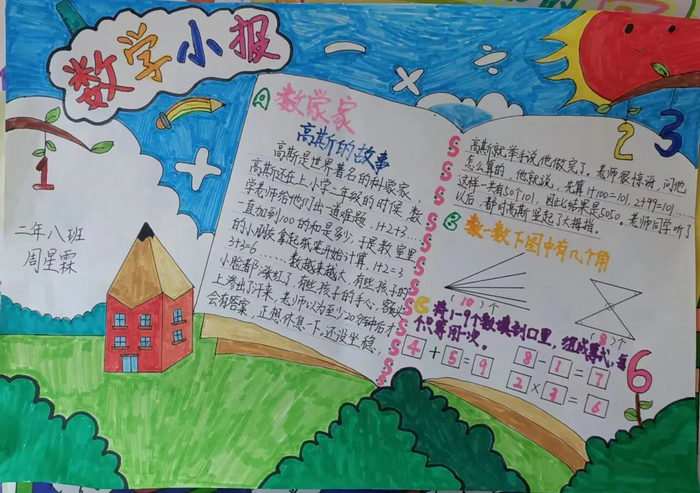 数学小报
1
2
3
二年八班
周星霖
A
数学家
高斯的故事
高斯是世界著名的科家家,
高斯还在上小学二年级的时候,数
学老师给他们出一道难题,1+2+3…
一直加到100的和是多少,于是教室里
的小朋友拿起纸笔开始计算,1+2=3
3+3=6……数越来越大,有些孩子的
小脸都涨红了,有些孩子的手心、
上渗出了汗来。老师以为至少20分钟后才
会有答案。正想休息一下,还没坐稳,
高斯就举手说,他做完了。老师很惊讶,问他
怎么算的,他就说,先算1+100=101,2+99=101……
这样一共有50个101,因此结果是5050。老师同学听了
以后,都对高斯竖起了大拇指。
B
数一数下图中有几个角
(10)个
(8)个
C
将1~9个数填到口里,组成算式,每
个只等用一次。
4+5=9
8-1=7
2×3=6
6